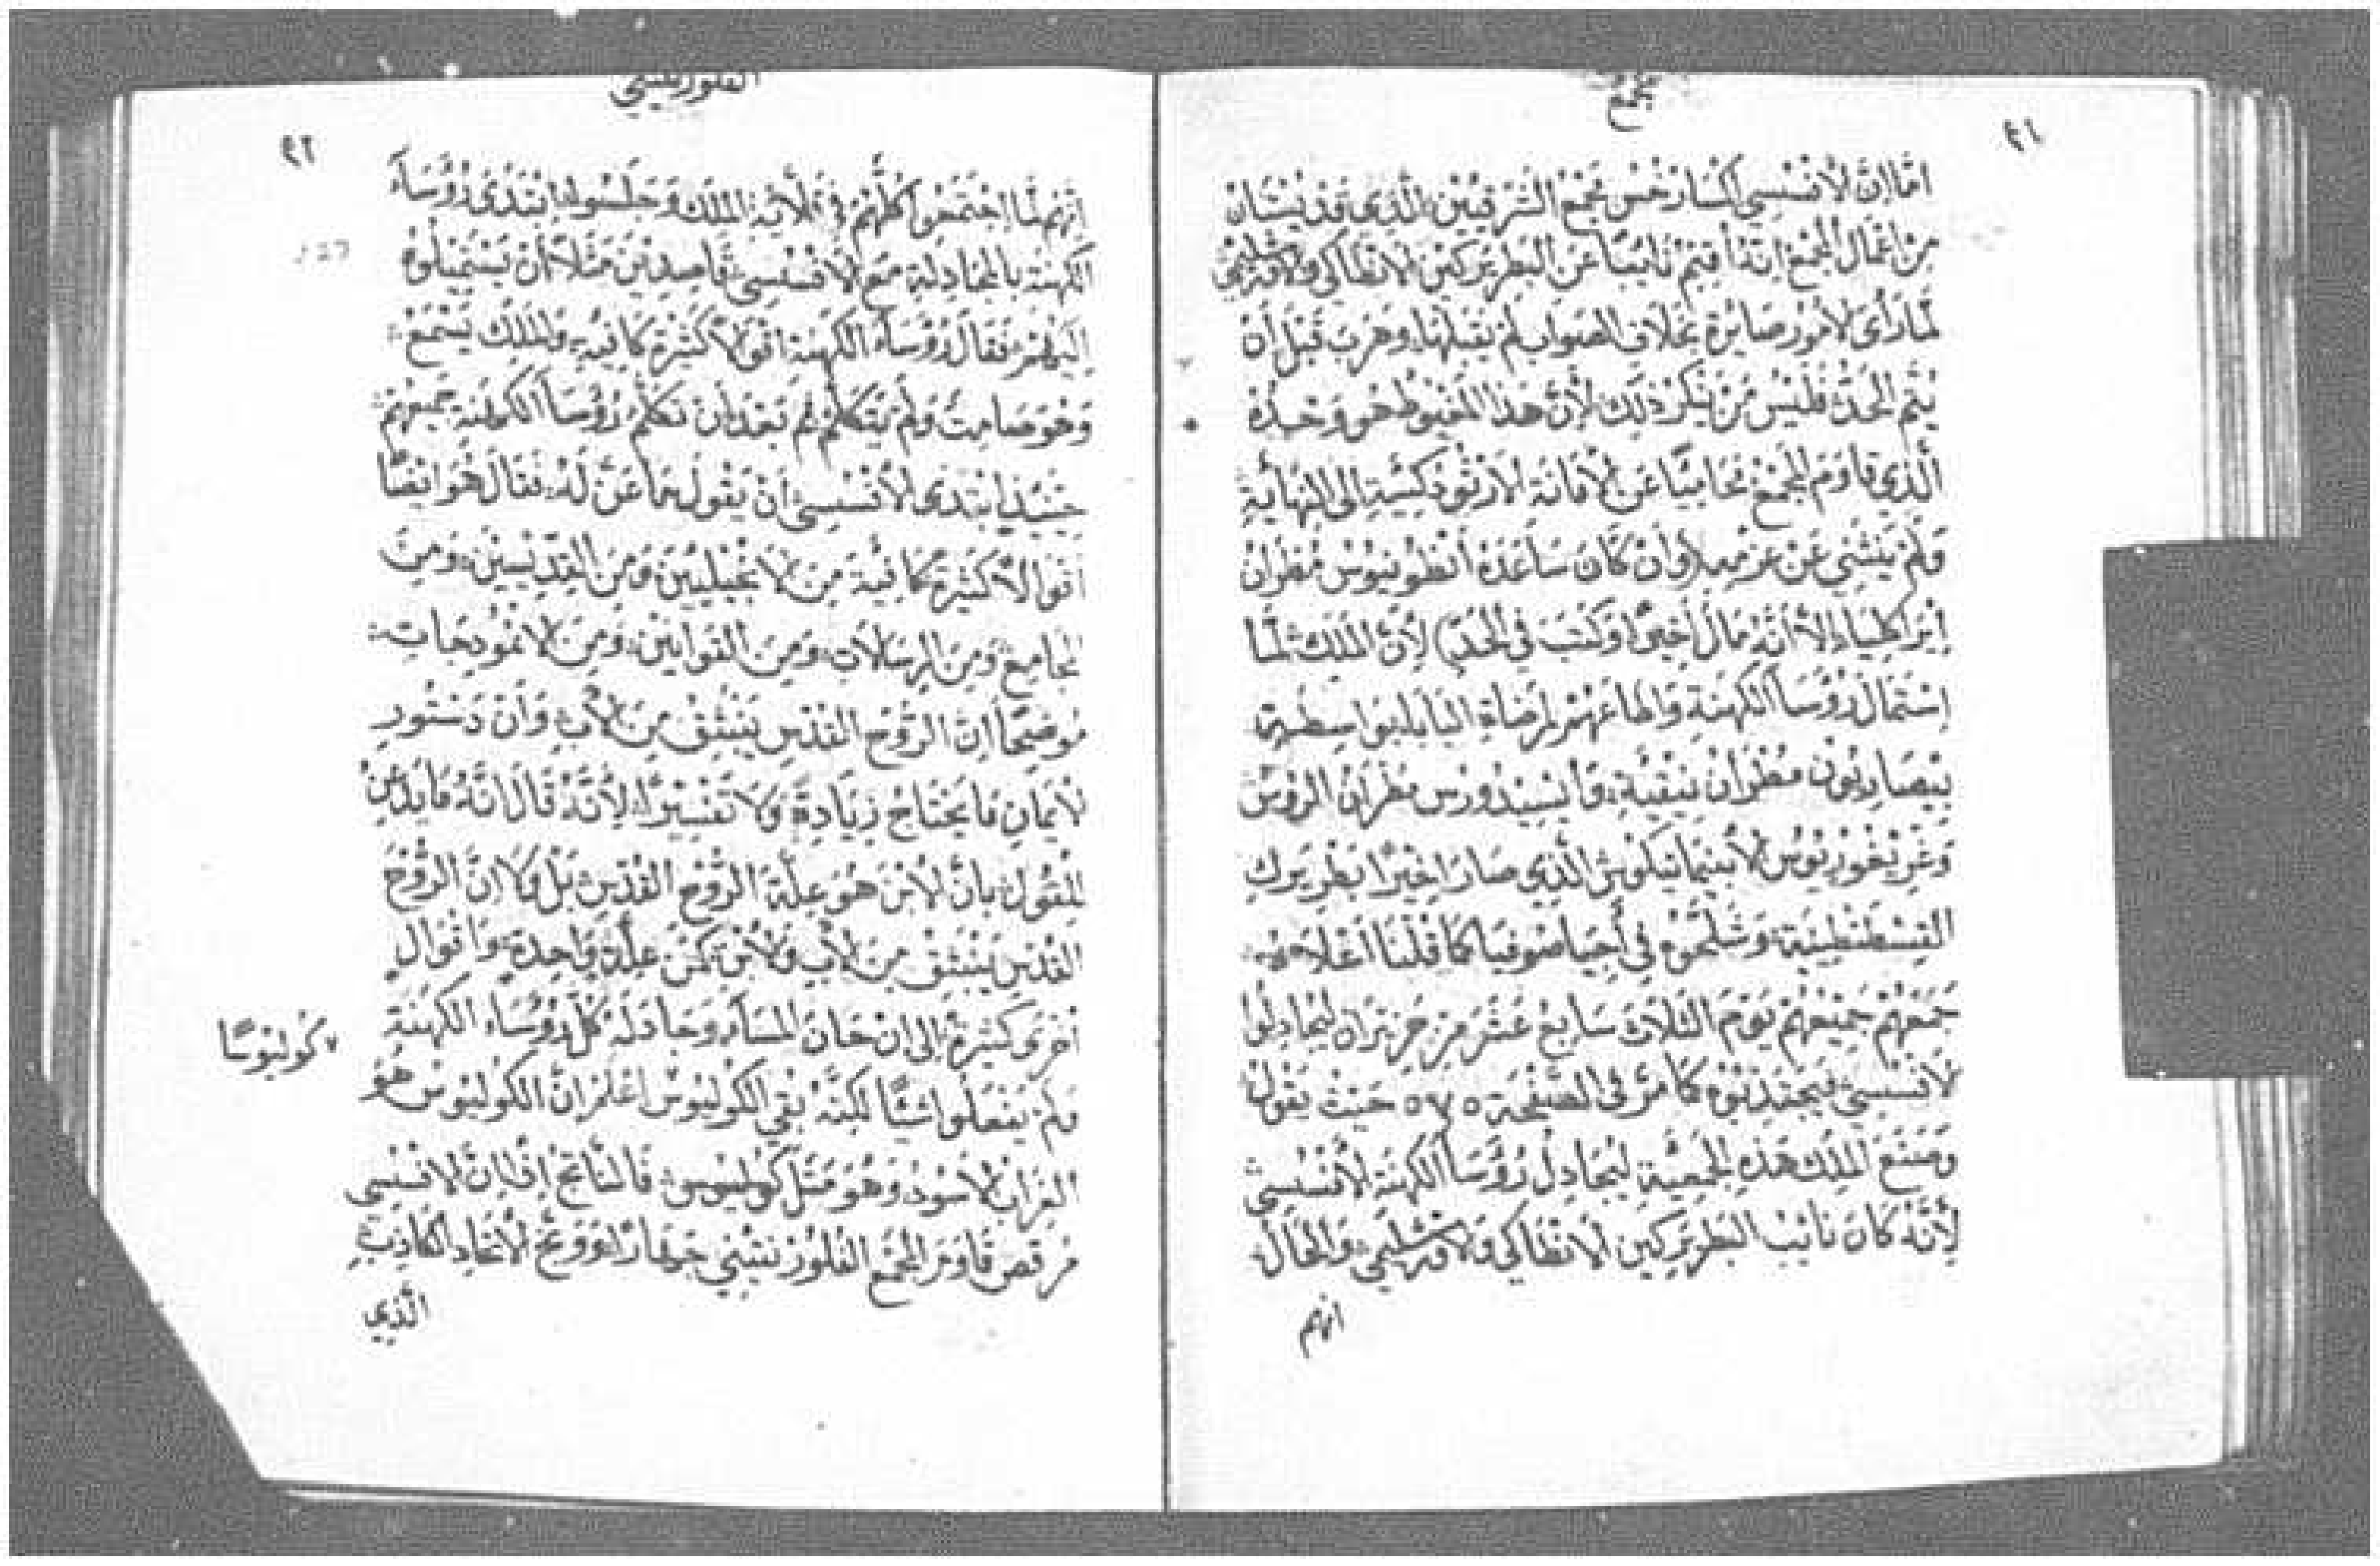 مجمع
٤١
امّا ان الأفسسي اكسارخس مجمع الشرقيين الذي قد يُستبان
من اعمال المجمع انه أقيم نايبًا عن البطريركين الانطاكي والاورشليمي
لما رأى الأمور صايرة بخلاف الصواب لم يقبلها وهرب قبل أن
يتم الحدّ فليس من ينكر ذلك لأنّ هذا المغبوط هو وحده
الذي قاوم المجمع محاميًا عن الأمانة الارثوذكسية الى النهاية
ولم ينثني عن عزمه (وان كان ساعده أنطونيوس مطران
ايراكليا إلا أنّه مال أخيرًا وكتب في الحد) لأن الملك لمّا
استمال رؤسا الكهنة واطاعهم لمرضاة البابا بواسطة
بيصاريون مطران نيقية وايسيدورس مطران الروس
وغريغوريوس الذي صار اخيرًا بطريرك
القسطنطينية في أجيا صوفيا كما قلنا أعلاه
جمعهم جميعهم يوم الثلاث سابع عشر من حزيران ليجادلوا
الافسسي ليجتذبوه كما مرّ في الصفحة ٥٧٥ حيث يقول
وصنع الملك هذه الجمعية ليجادل رؤسا الكهنة الأفسسي
لأنّه كان نايب البطريركين الانطاكي والاورشليمي والحال
انهم
الفلورنتيني
٤٢
انهم لما اجتمعوا كلهم في الملك وجلسوا ابتدى رؤساء
الكهنة بالمجادلة مع الافسسي قاصدين مثلاً أن يستميلوه
إليهم فقال رؤساء الكهنة اقوالاً كثيرة كافية والملك يسمع
وهو صامت ولم يتكلم ثم بعد أن تكلم رؤسا الكهنة جميعهم
حينيذ ابتدى الأفسسي أن يقول عما عنّ له فقال هو ايضًا
اقوالاً كثيرة كافية من الانجيليين ومن القديسين ومن
المجامع ومن الرسالات ومن القوانين ومن الانموذجات
موضحًا ان الروح القدس ينبثق من الأب وان دستور
الأيمان ما يحتاج زيادة ولا تفسيرًا لأنّه قال انّه ما
للقول بأنّ الأبن هو علة الروح القدس بل ولا انّ الروح
القدس ينبثق من الأب والأبن كمن علة واحدة واقوال
أخرى كثيرة الى ان حان المساء وجادله كل رؤساء الكهنة
ولم يفعلوا شيًا لكنه بقي الكوليوس اعلم انّ الكوليوس هو
كوليوسًا
الغراب الأسود وهو مثل كوليوس فالناتج اذًا انّ الافسسي
مرقص قاوم المجمع الفلورنتيني جهارًا ووبّخ الأتحاد الكاذب
الذي